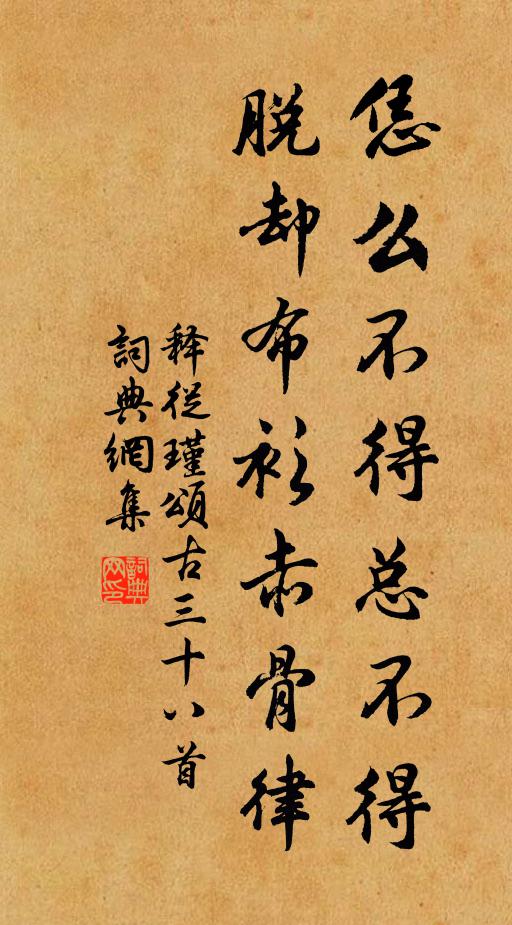 恁么不得总不得
脱却布衫赤骨律
释從瑾頌古三十八首
詞典網集
詞典网印